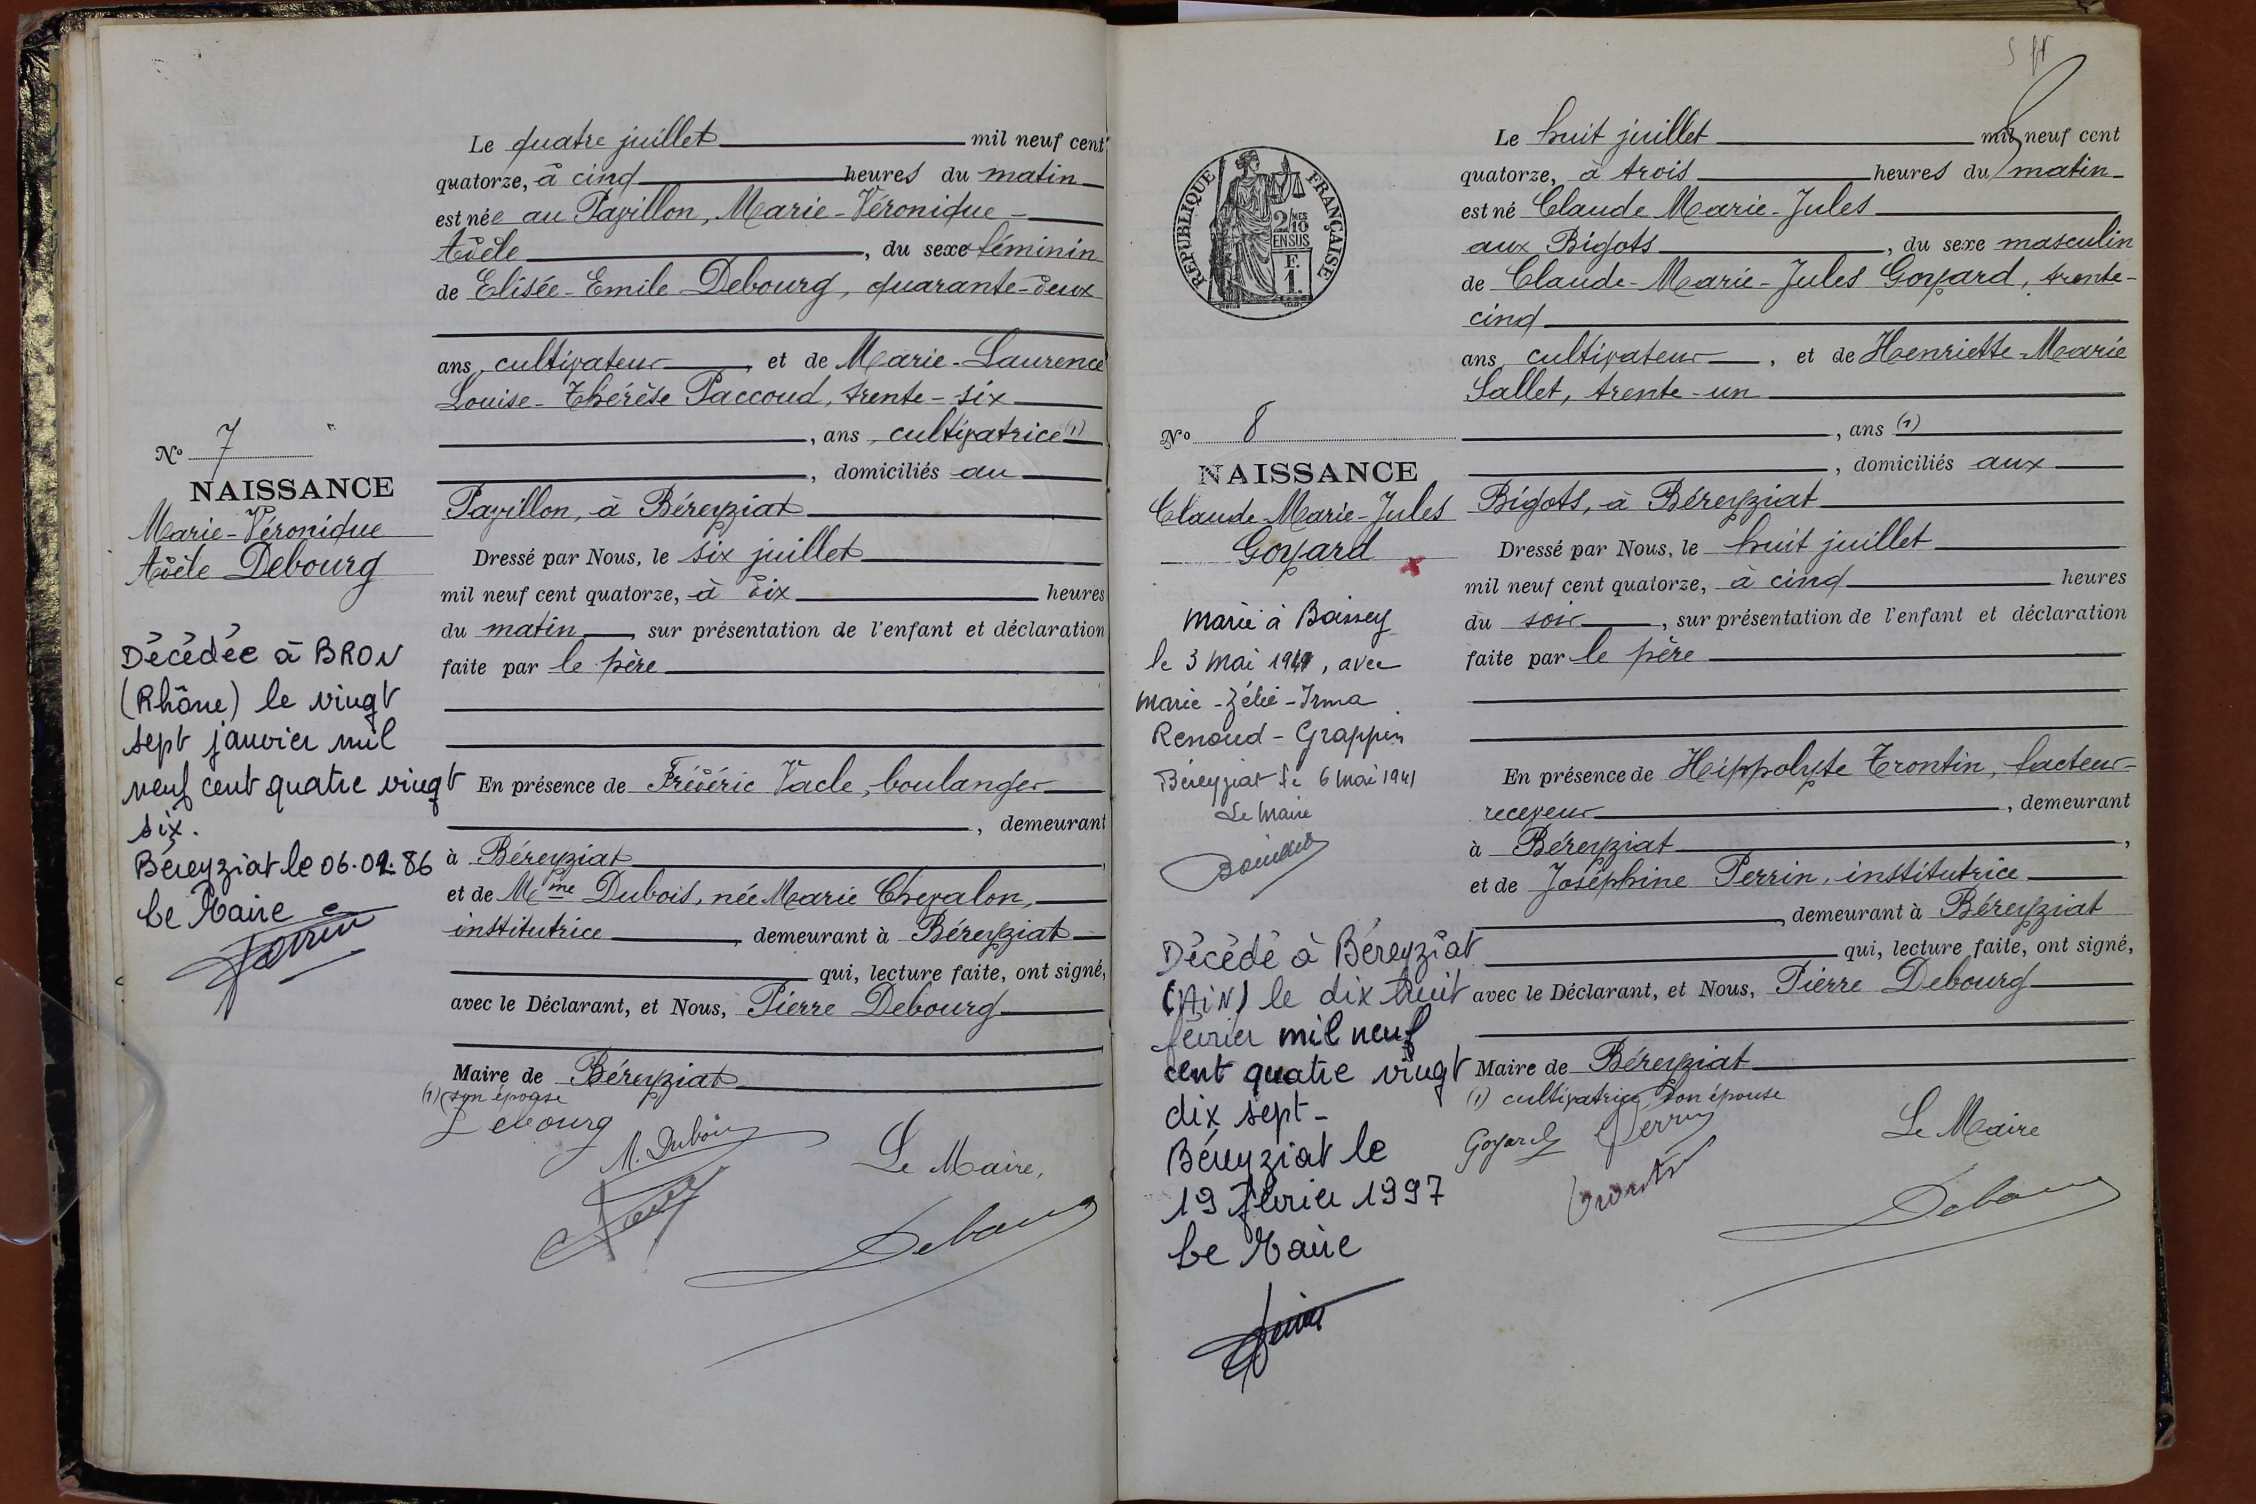 Le quatre juillet mil neuf cent
quatorze, à cinq heures du matin
est née au Pavillon, Marie-Véronique-
Adèle, du sexe féminin
de Elisée-Emile Debourg, quarante-deux
ans, cultivateur, et de Marie-Laurence
Louise-Thérèse Paccoud, trente-six
, ans, cultivatrice (1)
, domiciliés au
Pavillon, à Béreyziat
Dressé par Nous, le six juillet
mil neuf cent quatorze, à dix heures
du matin, sur présentation de l'enfant et déclaration
faite par le père
En présence de Frédéric Vacle, boulanger
, demeurant
à Béreyziat,
et de Mme Dubois, née Marie Chevalon,
institutrice, demeurant à Béreyziat
qui, lecture faite, ont signé,
avec le Déclarant, et Nous, Pierre Debourg
Maire de Béreyziat
(1) son épouse
Debourg
M. Dubois
Le Maire,
Debourg
No 7
NAISSANCE
Marie-Véronique
Adèle Debourg
Décédée à BRON
(Rhône) le vingt
sept janvier mil
neuf cent quatre vingt
six.
Béreyziat le 06.02.86
Le Maire
REPUBLIQUE FRANÇAISE
2/10 MES
EN SUS
F.
1.
Le huit juillet mil neuf cent
quatorze, à trois heures du matin
est né Claude Marie-Jules
aux Bigots, du sexe masculin
de Claude-Marie-Jules Goyard, trente-
cinq
ans, cultivateur, et de Henriette-Marie
Sallet, trente-un
, ans (1)
, domiciliés aux
Bigots, à Béreyziat
Dressé par Nous, le huit juillet
mil neuf cent quatorze, à cinq heures
du soir, sur présentation de l'enfant et déclaration
faite par le père
En présence de Hippolyte Trontin, facteur-
receveur, demeurant
à Béreyziat,
et de Joséphine Perrin, institutrice
, demeurant à Béreyziat
qui, lecture faite, ont signé,
avec le Déclarant, et Nous, Pierre Debourg
Maire de Béreyziat
(1) cultivatrice, son épouse
Goyard Perrin
Trontin
Le Maire
Debourg
No 8
NAISSANCE
Claude-Marie-Jules
Goyard
Marié à Boissey
le 3 mai 1941, avec
Marie-Zélie-Irma
Renoud-Grappin
Béreyziat le 6 mai 1941
Le Maire
Décédé à Béreyziat
(AiN) le dix huit
février mil neuf
cent quatre vingt
dix sept-
Béreyziat le
19 février 1997
Le Maire